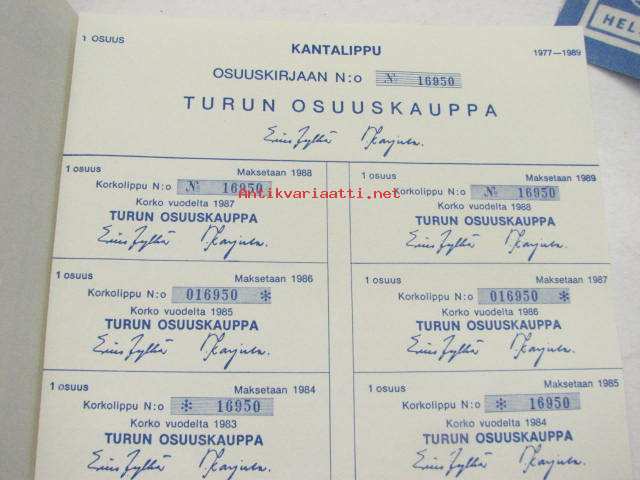 1 OSUUS
KANTALIPPU
1977—1989
OSUUSKIRJAAN N:o № 16950
TURUN OSUUSKAUPPA
1 osuus Maksetaan 1988
Korkolippu N:o № 16950
Korko vuodelta 1987
TURUN OSUUSKAUPPA
1 osuus Maksetaan 1989
Korkolippu N:o № 16950
Korko vuodelta 1988
TURUN OSUUSKAUPPA
Antikvariaatti.net
1 osuus Maksetaan 1986
Korkolippu N:o 016950 *
Korko vuodelta 1985
TURUN OSUUSKAUPPA
1 osuus Maksetaan 1987
Korkolippu N:o 016950 *
Korko vuodelta 1986
TURUN OSUUSKAUPPA
1 osuus Maksetaan 1984
Korkolippu N:o * 16950
Korko vuodelta 1983
TURUN OSUUSKAUPPA
1 osuus Maksetaan 1985
Korkolippu N:o * 16950
Korko vuodelta 1984
TURUN OSUUSKAUPPA
HEL